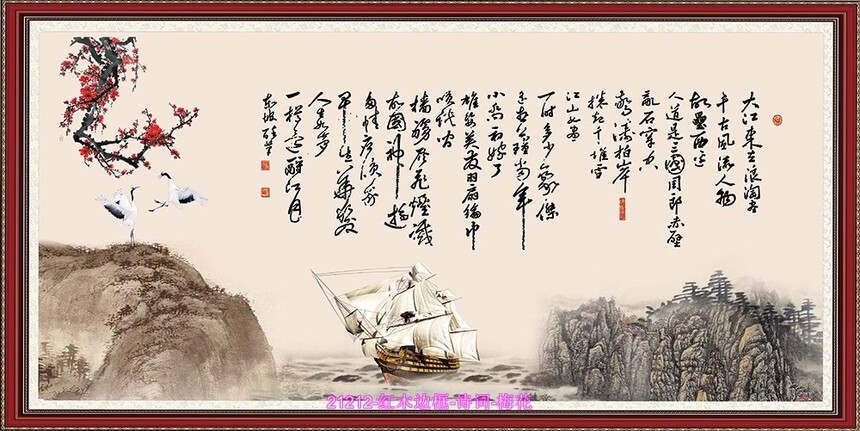 大江東去浪淘尽
千古風流人物
故壘西边
人道是三國周郎赤壁
亂石穿空
驚濤拍岸
捲起千堆雪
江山如畫
一时多少豪傑
遥想公瑾當年
小乔初嫁了
雄姿英发羽扇綸巾
談笑間
檣櫓灰飛煙滅
故國神遊
多情應笑我
早生華髮
人生如夢
一樽還酹江月
東坡
21212-红木边框-诗词-梅花